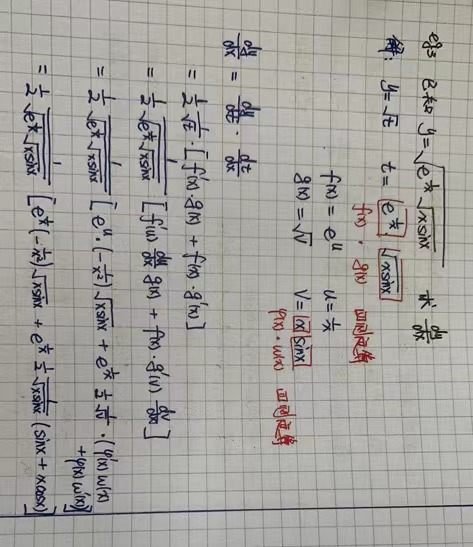 eg3 已知 y=√(e^(1/x) √(xsinx)) 求 dy/dx
解: y=√t t= e^(1/x) √(xsinx)
f(x) · g(x) 四则运算
f(x) = e^u u= 1/x
g(x) = √v v= x sinx
φ(x)·w(x) 四则运算
dy/dx = dy/dt · dt/dx
= 1/2 1/√t ·[f'(x)·g(x) + f(x)·g'(x)]
= 1/2 1/√(e^(1/x) √(xsinx)) [f'(u) du/dx g(x) + f(x)·g'(v) dv/dx]
= 1/2 1/√(e^(1/x) √(xsinx)) [e^u·(-1/x²) √(xsinx) + e^(1/x) 1/2 1/√v ·(φ'(x) w(x)
+φ(x) w'(x))]
= 1/2 1/√(e^(1/x) √(xsinx)) [e^(1/x) (-1/x²) √(xsinx) + e^(1/x) 1/2 1/√(xsinx) (sinx + xcosx)]